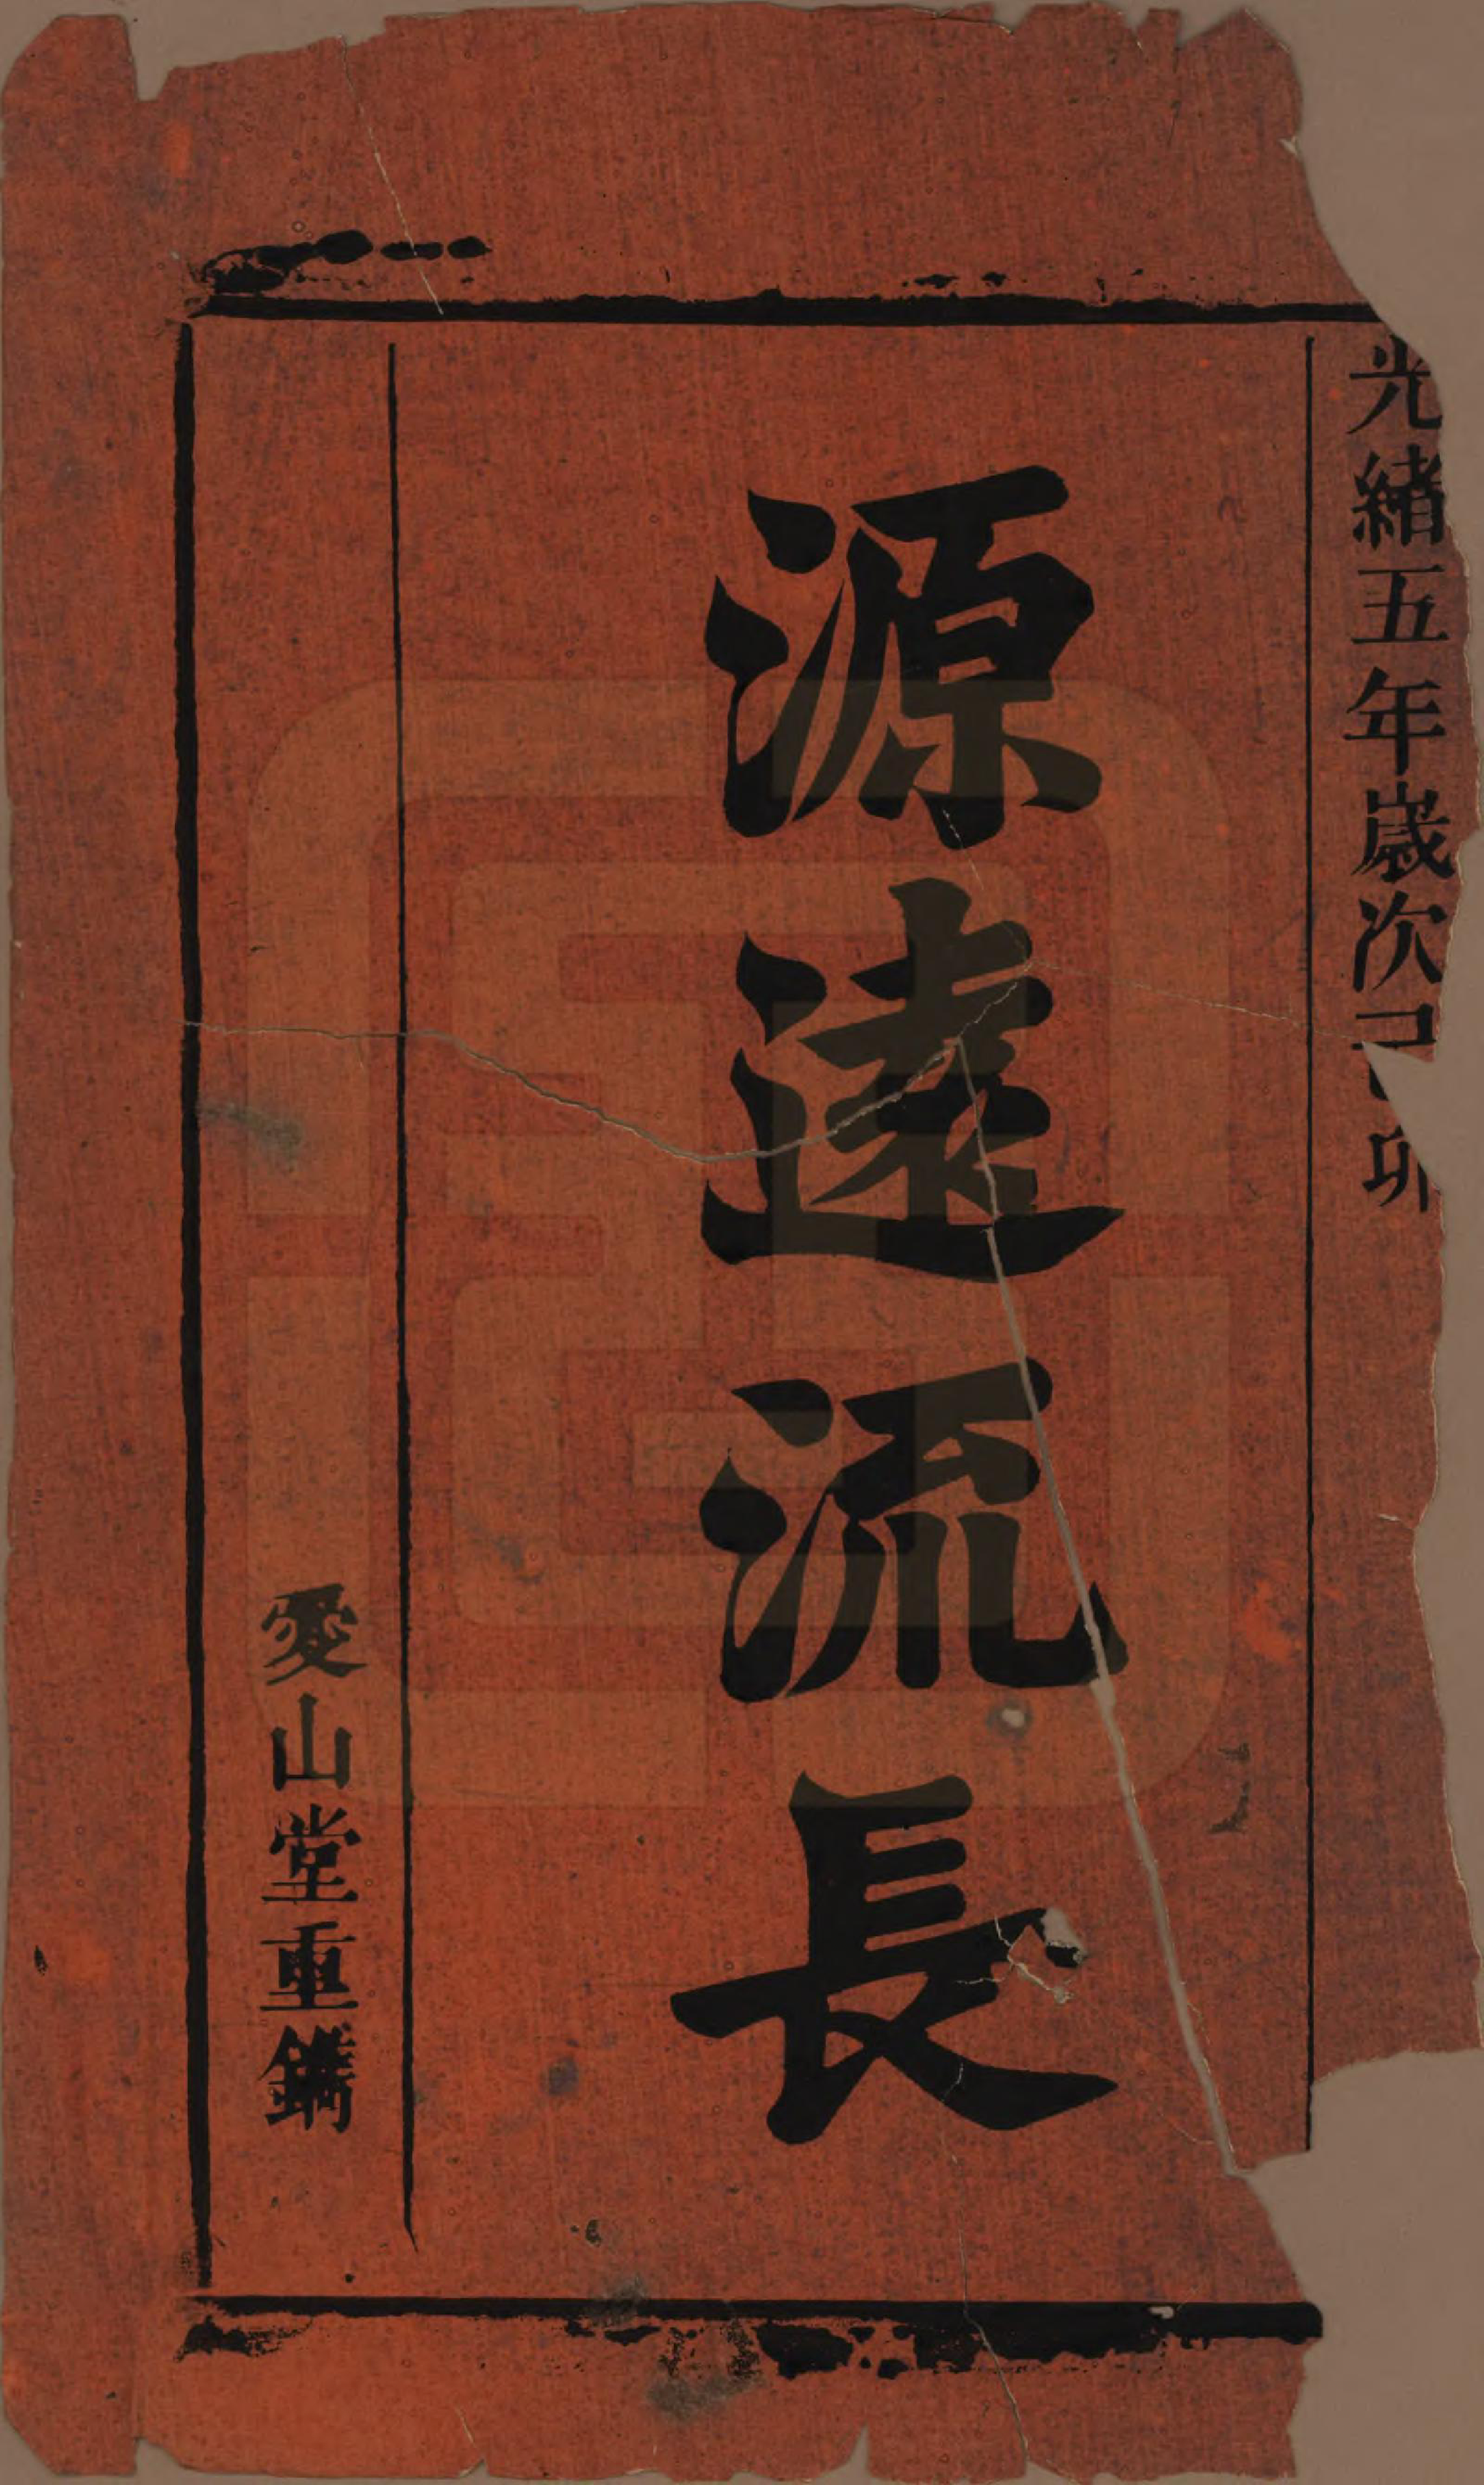 光緒五年歲次己卯
源遠流長
愛山堂重鐫